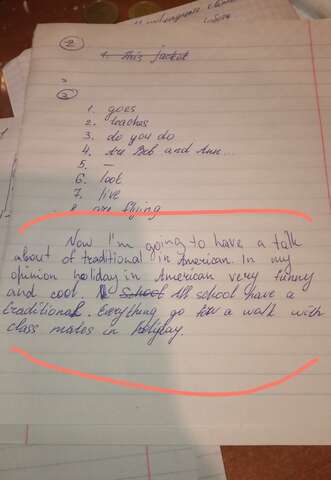 2
1. This jacket
3
1. goes
2. teaches
3. do you do
4. Are Bob and Ann...
5. —
6. look
7. live
8. are flying
Now I'm going to have a talk
about of traditional in American. In my
opinion holiday in American very funny
and cool. School All school have a
traditional. Everything go for a walk with
class mates in holyday.